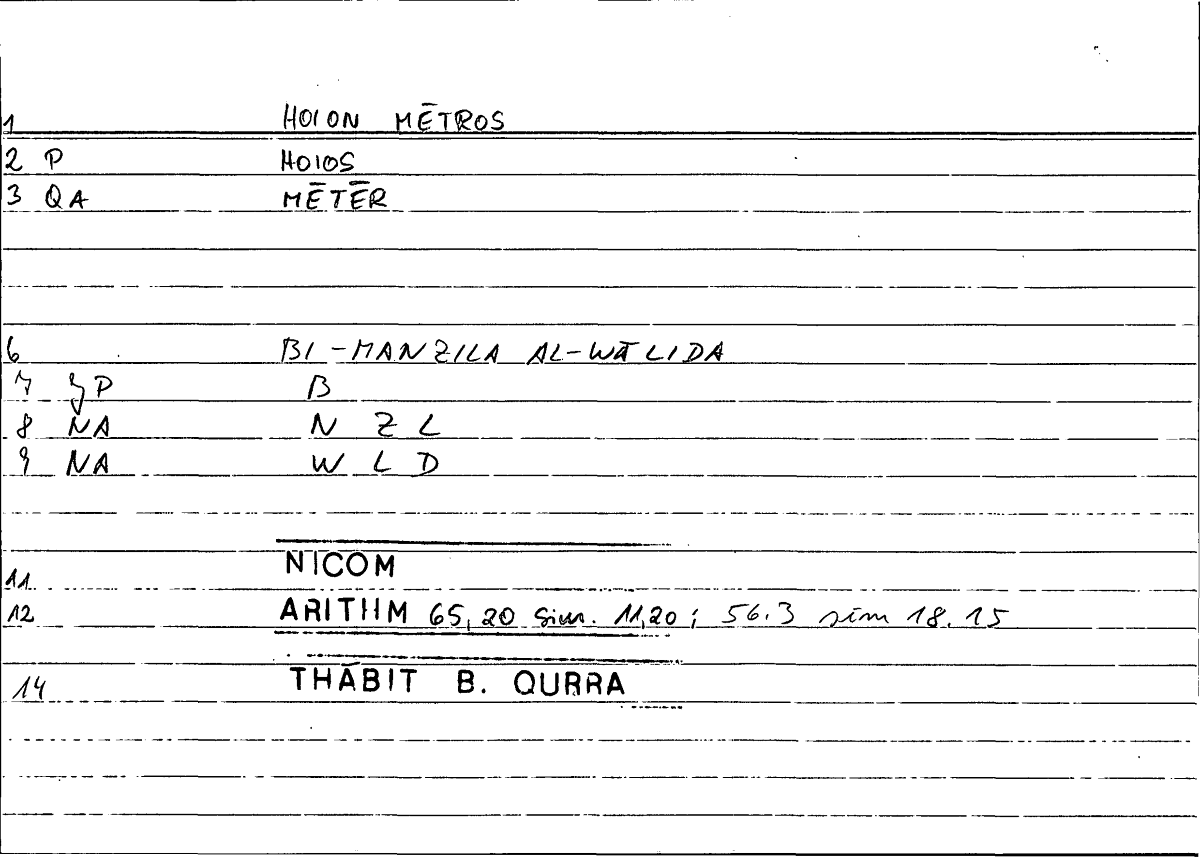 1 HOION MĒTROS
2 P HOIOS
3 QA MĒTĒR
6 BI-MANZILA AL-WĀLIDA
7 P B
8 NA N Z L
9 NA W L D
11 NICOM
12 ARITHM 65,20 sim. 11,20; 56.3 sim 18.15
14 THĀBIT B. QURRA